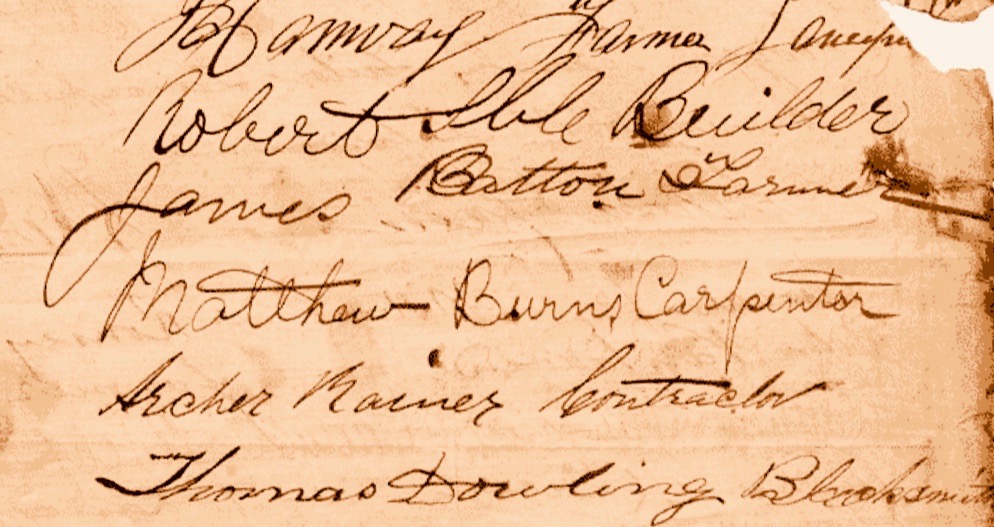 Hanway Farmer
Robert Sble Builder
James Batton Farmer
Matthew Burns Carpentor
Archer Rainer Contractor
Thomas Dowling Blacksmith